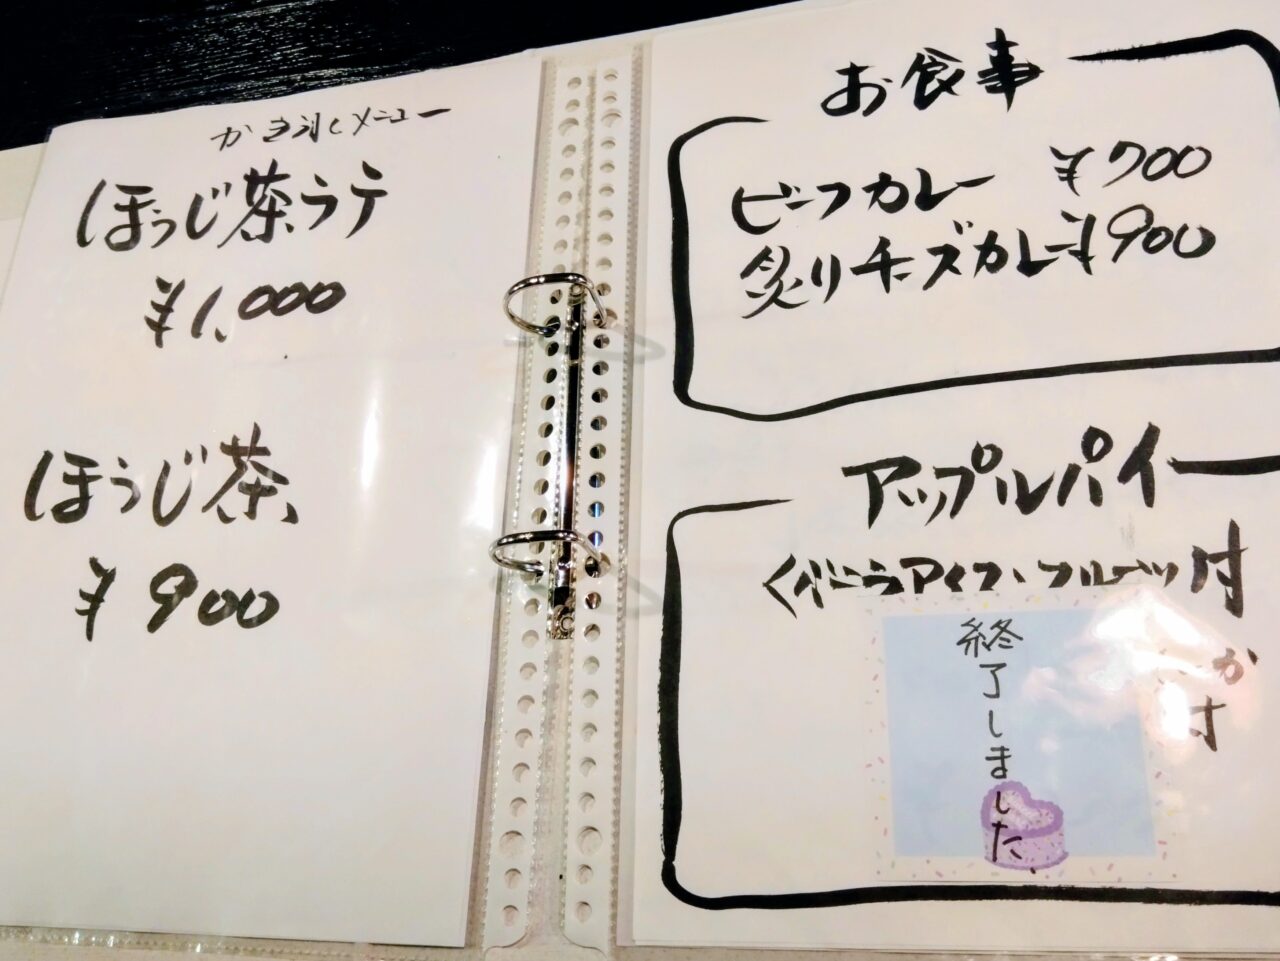 かき氷メニュー
ほうじ茶ラテ
¥1,000
ほうじ茶
¥900
お食事
ビーフカレー ¥700
炙りチーズカレー ¥900
アップルパイ
バニラアイス、フルーツ付
終了しました